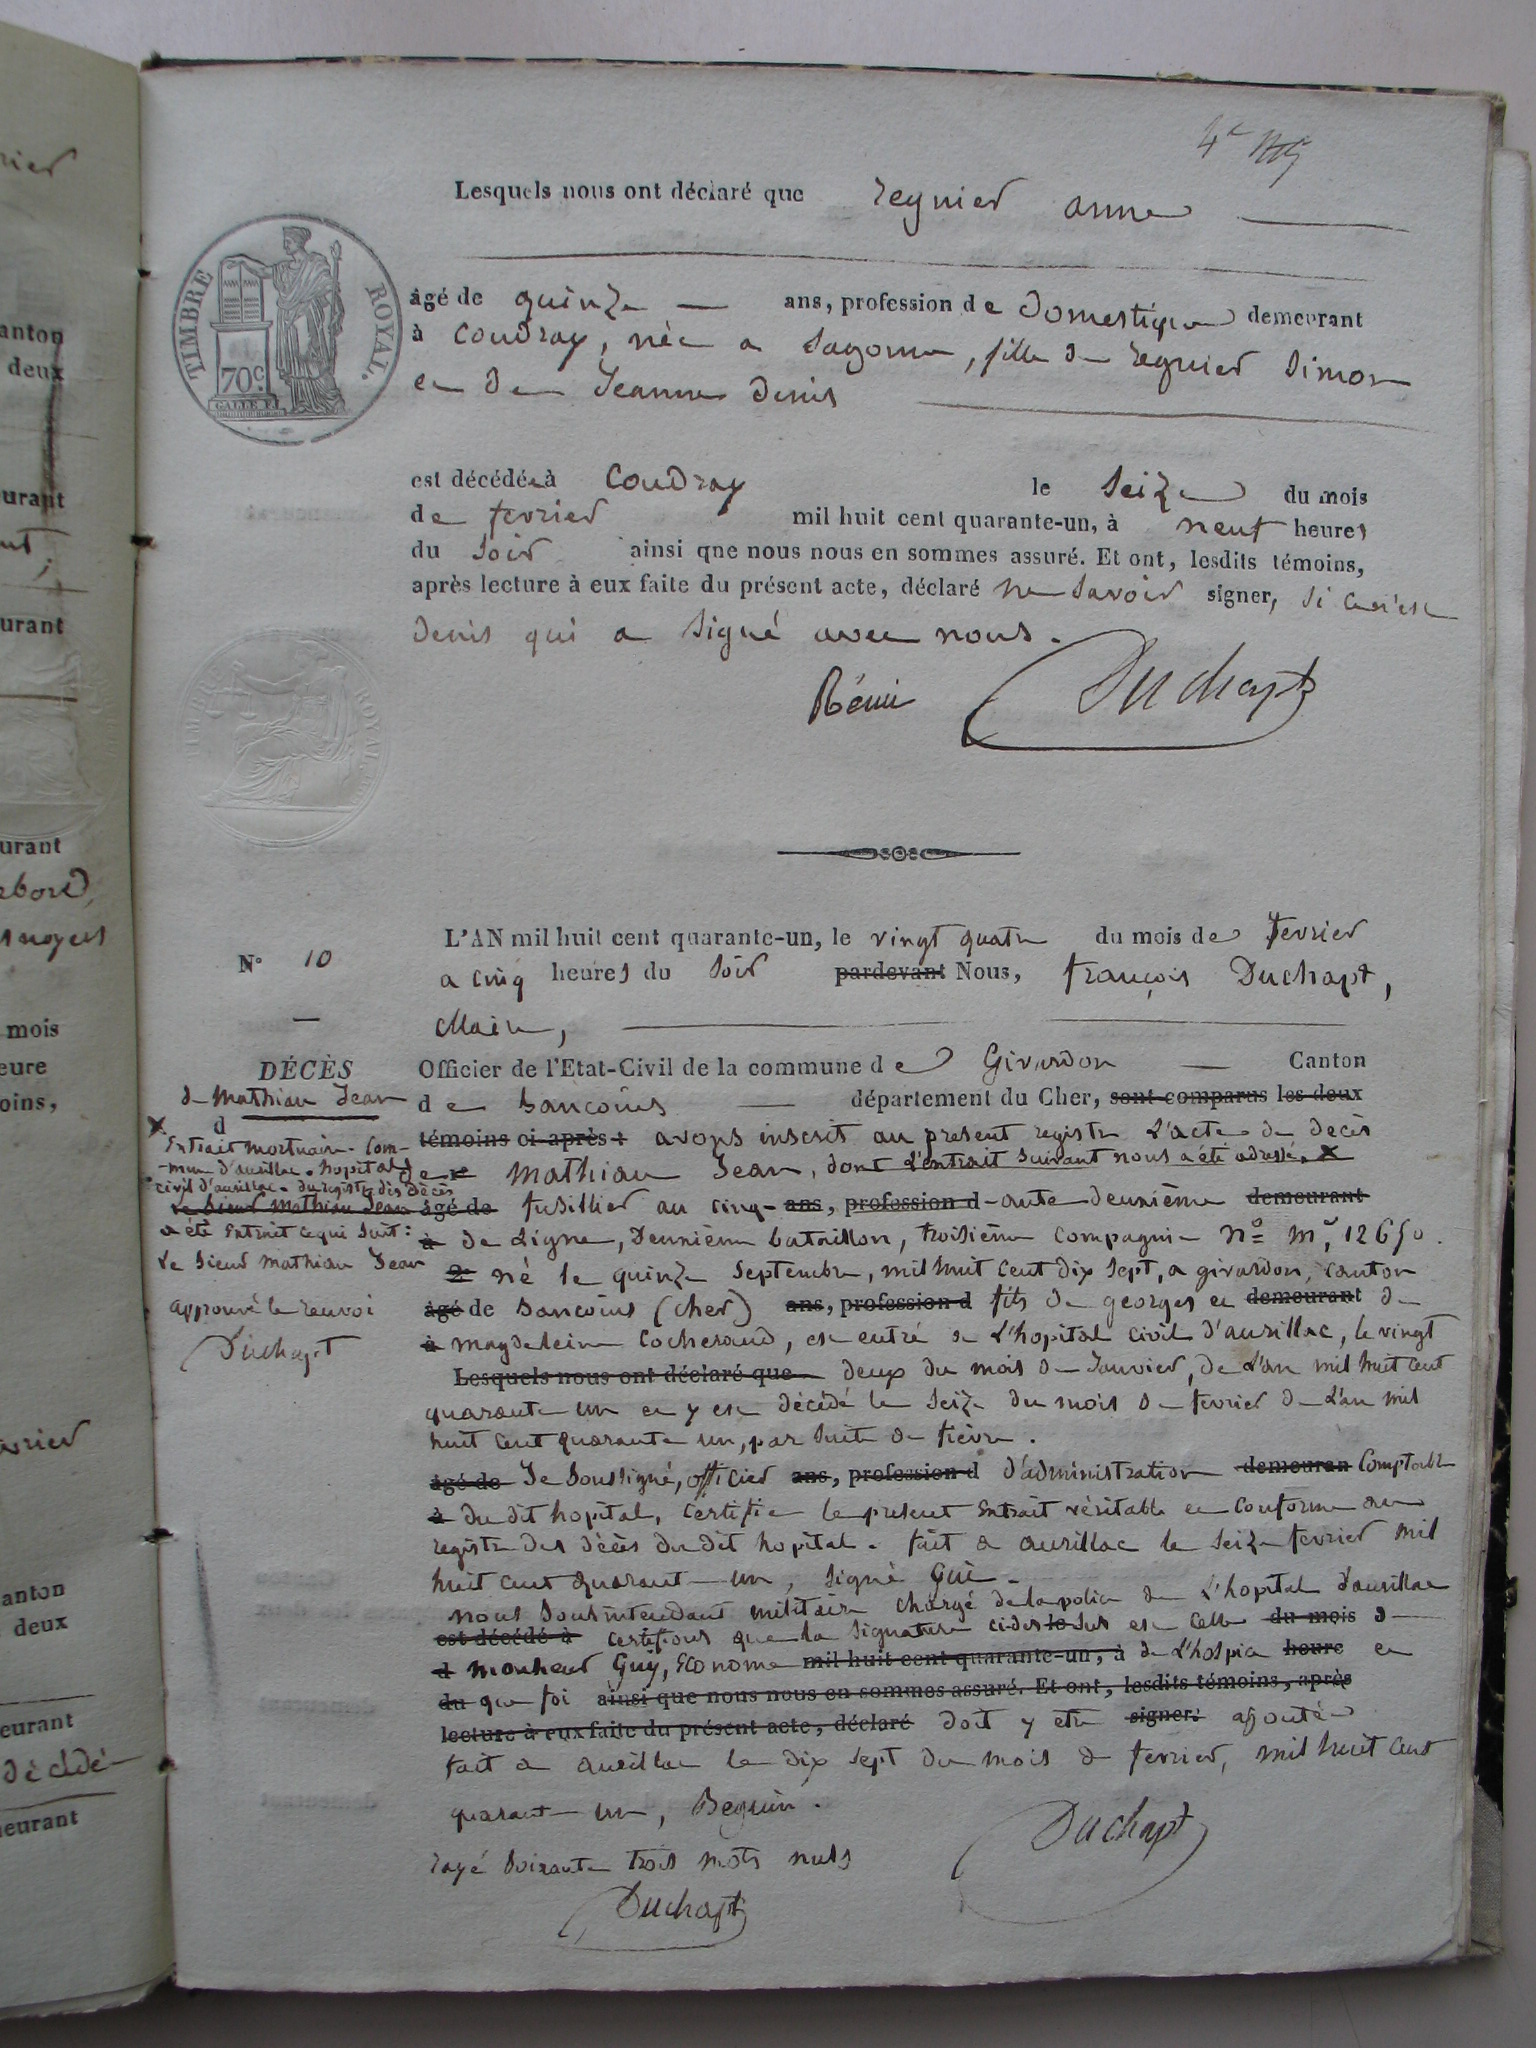 4e
Lesquels nous ont déclaré que regnier anne
TIMBRE ROYAL.
70c.
âgé de quinze ans, profession de Domestique demeurant
à Coudray, née a Sagonne, fille de regnier Simon
et de Jeanne Denis
est décédée à Coudray le Seize du mois
de fevrier mil huit cent quarante-un, à neuf heures
du Soir ainsi que nous nous en sommes assuré. Et ont, lesdits témoins,
après lecture à eux faite du présent acte, déclaré ne Savoir signer, Si ce n'est
Denis qui a Signé avec nous.
Duchapt
N° 10
L'AN mil huit cent quarante-un, le vingt quatre du mois de fevrier
a cinq heures du Soir pardevant Nous, françois Duchapt,
Maire,
DÉCÈS
de Mathiau Jean
d
X Extrait mortuaire. Com-
-mune d'aurillac. hopital
civil d'aurillac. du registre des Décès
Le Sieur Mathiau Jean
a été Extrait ce qui Suit:
Le Sieur Mathiau Jean
approuvé le renvoi
Duchapt
Officier de l'Etat-Civil de la commune de Givardon Canton
de Sancoins département du Cher, sont comparus les deux
témoins ci-après : avons inscrit au present registre L'acte de Décès
de Mathiau Jean, dont L'extrait Suivant nous a été adressé. X
âgé de fusillier au cinq- ans, profession d -ante deuxième demeurant
à de Ligne, Deuxième bataillon, troisième Compagnie N° M.le 12650.
2° né le quinze Septembre, mil huit cent dix Sept, a givardon, canton
âgé de Sancoins (cher) ans, profession d fils de georges et demeurant de
à magdeleine Cocheraud, est entré a L'hopital civil d'aurillac, le vingt
Lesquels nous ont déclaré que deux du mois de Janvier, de L'an mil huit cent
quarante un et y est décédé le Seize du mois de fevrier de L'an mil
huit cent quarante un, par Suite de fièvre.
âgé de Je Soussigné, officier ans, profession d d'administration demeuran Comptable
à du dit hopital, Certifie le present Extrait véritable et Conforme au
registre des décès du dit hopital. fait a aurillac le Seize fevrier mil
huit cent quarante un, Signé Gui.
nous Sousintendant militaire chargé de la police de L'hopital d'aurillac
est décédé à certifions que la Signature ci-des le sus est celle du mois d
d monsieur Guy, Econome mil huit cent quarante-un, à de L'hospice heure en
du que foi ainsi que nous nous en sommes assuré. Et ont, lesdits témoins, après
lecture à eux faite du présent acte, déclaré doit y etre signer: ajoutée
fait a aurillac le dix Sept du mois de fevrier, mil huit cent
quarante un, Beguin.
rayé Soixante trois mots nuls
Duchapt
Duchapt